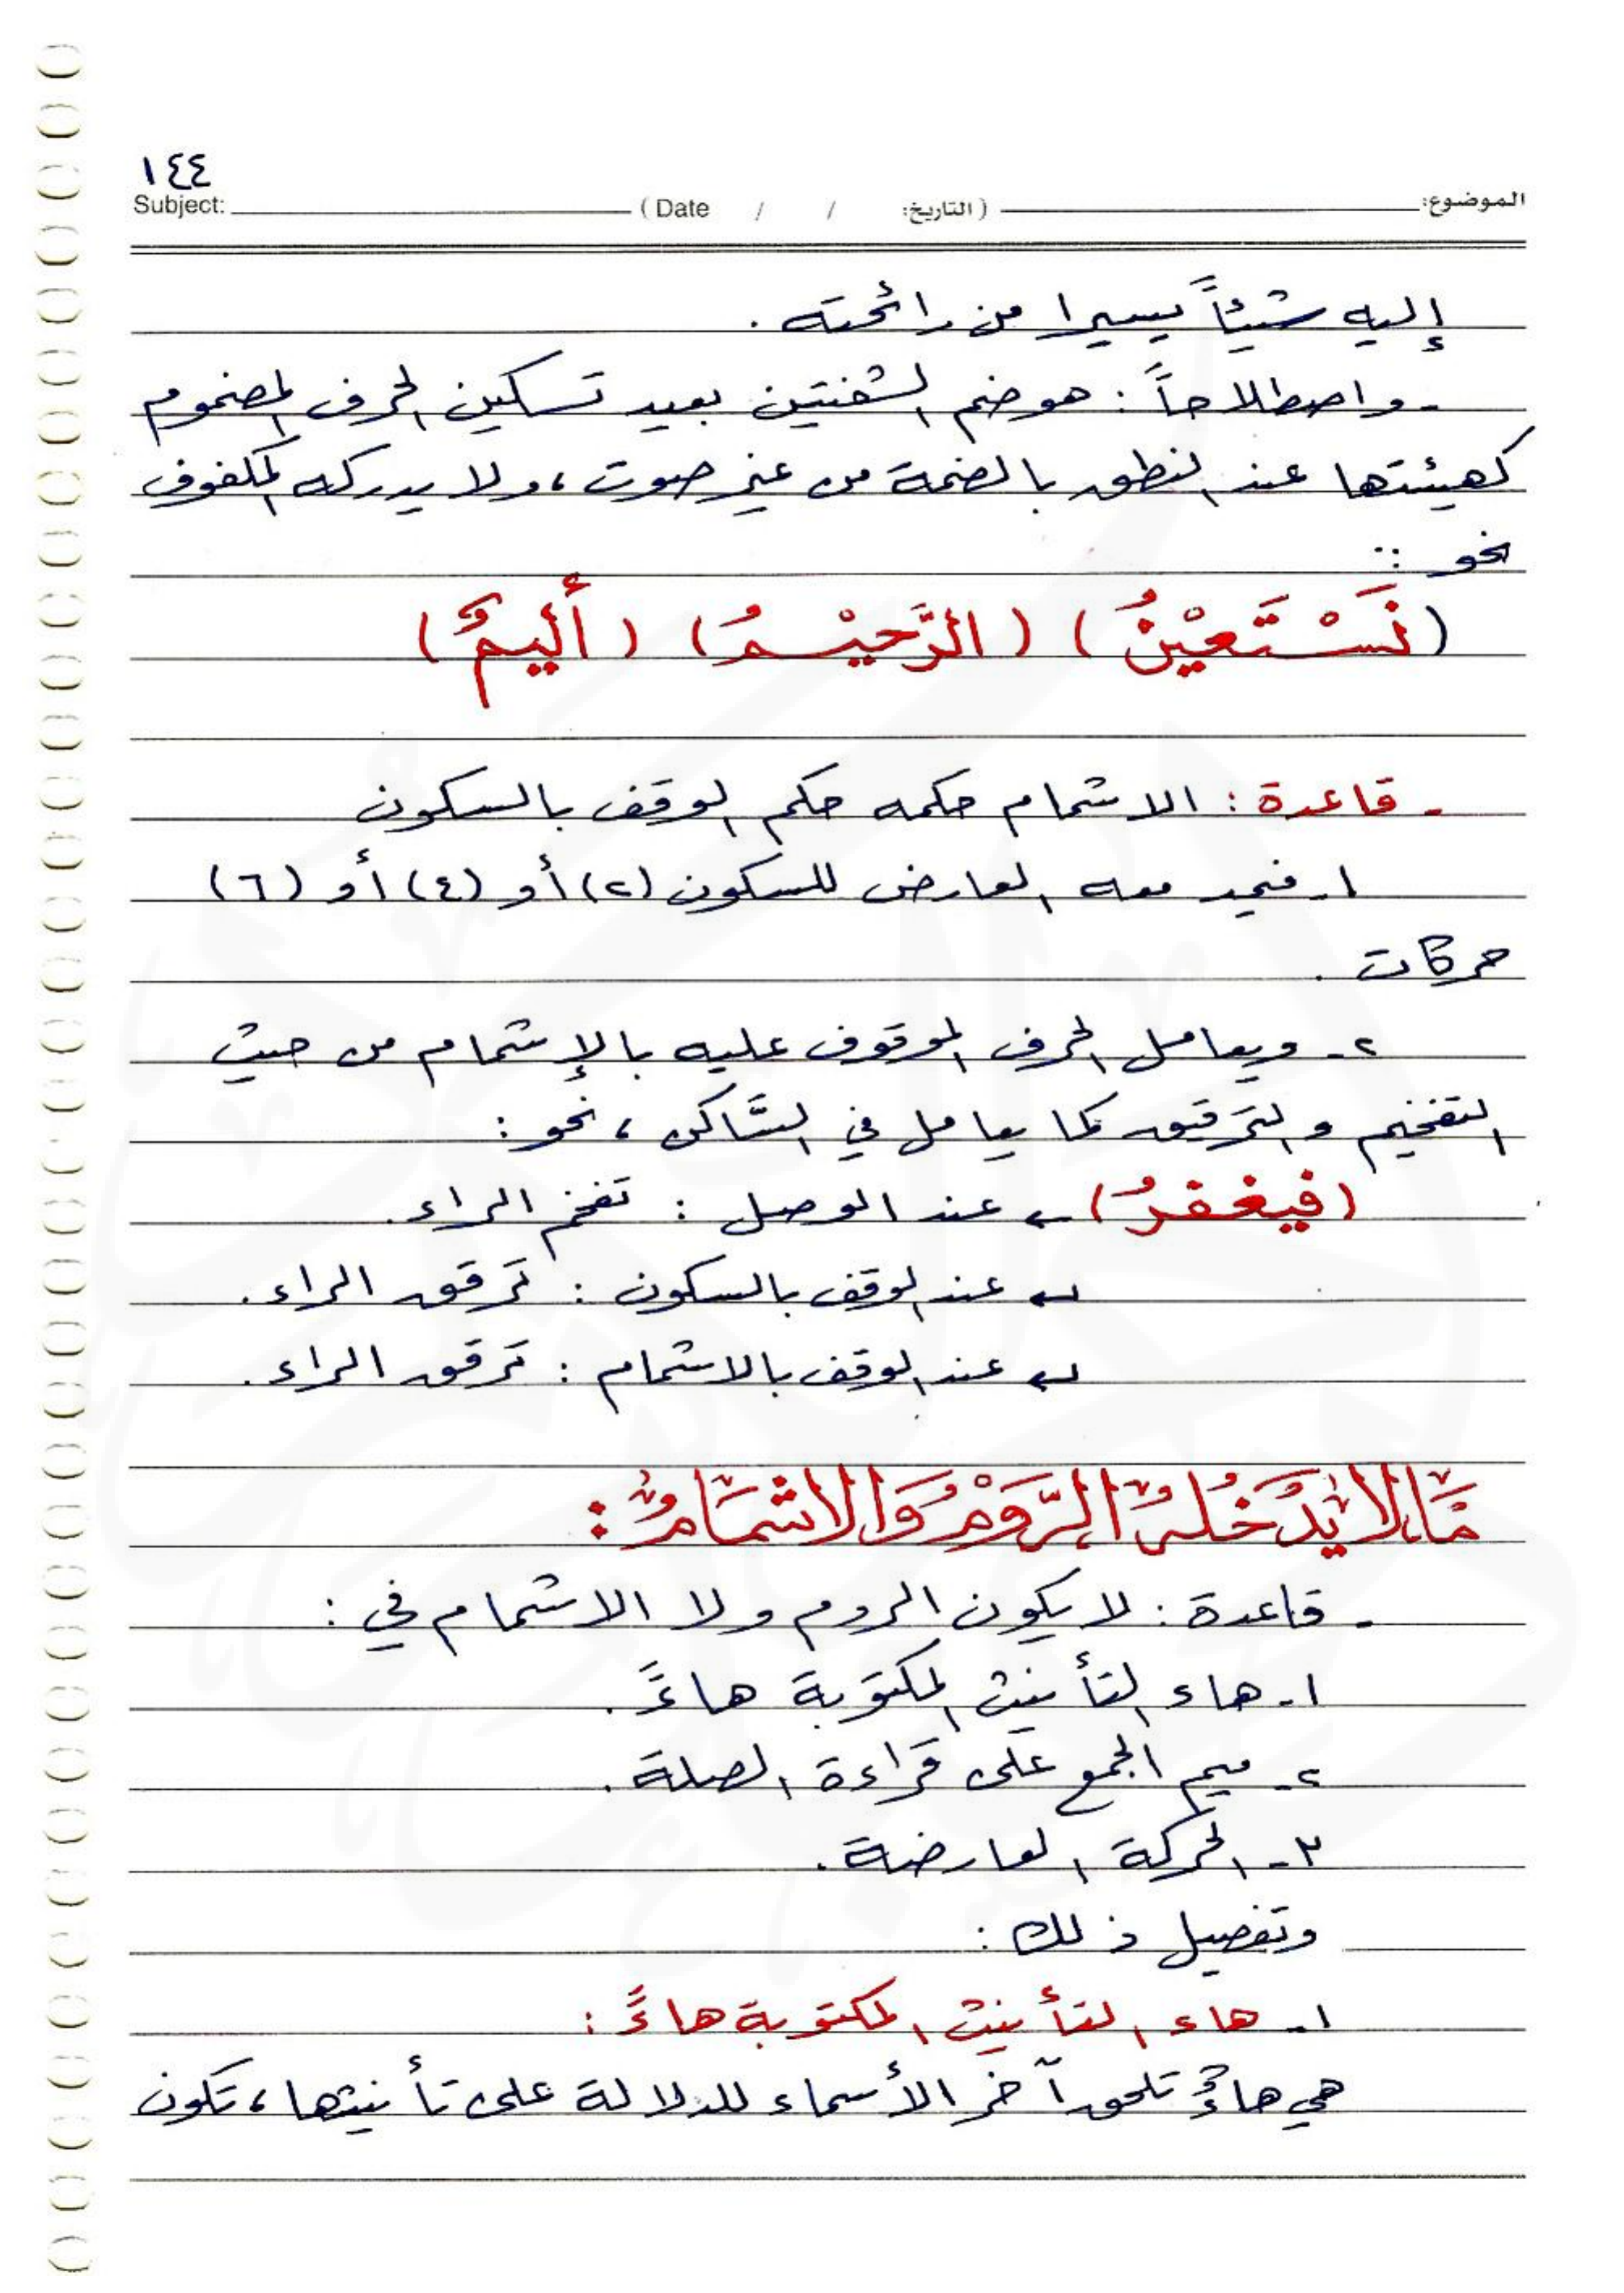 ١٤٤
Subject: ( Date / / التاريخ: ) الموضوع:
إليه شيئاً يسيرا من رائحته .
- واصطلاحاً : هو ضم الشفتين بعيد تسكين الحرف المضموم
كهيئتها عند النطق بالضمة من غير صوت ، ولا يدركه المكفوف
نحو :
(نَسْتَعِيْنُ) (الرَّحِيْمُ) (أَلِيمٌ)
- قاعدة : الاشمام حكمه حكم الوقف بالسكون
١- فيمد معه العارض للسكون (٢) أو (٤) أو (٦)
حركات .
٢- ويعامل الحرف الموقوف عليه بالإشمام من حيث
التفخيم والترقيق كما يعامل في السَّاكن ، نحو :
(فيغفرُ) ← عند الوصل : تفخم الراء .
↵ عند الوقف بالسكون : ترقق الراء .
↵ عند الوقف بالاشمام : ترقق الراء .
مَا لَا يَدْخُلُهُ الرَّوْمُ وَالاشْمَامُ :
- قاعدة : لا يكون الروم ولا الاشمام في :
١- هاء التأنيث المكتوبة هاءً .
٢- ميم الجمع على قراءة الصلة .
٣- الحركة العارضة .
وتفصيل ذلك :
١- هاء التأنيث المكتوبة هاءً :
هي هاءٌ تلحق آخر الأسماء للدلالة على تأنيثها ، تكون